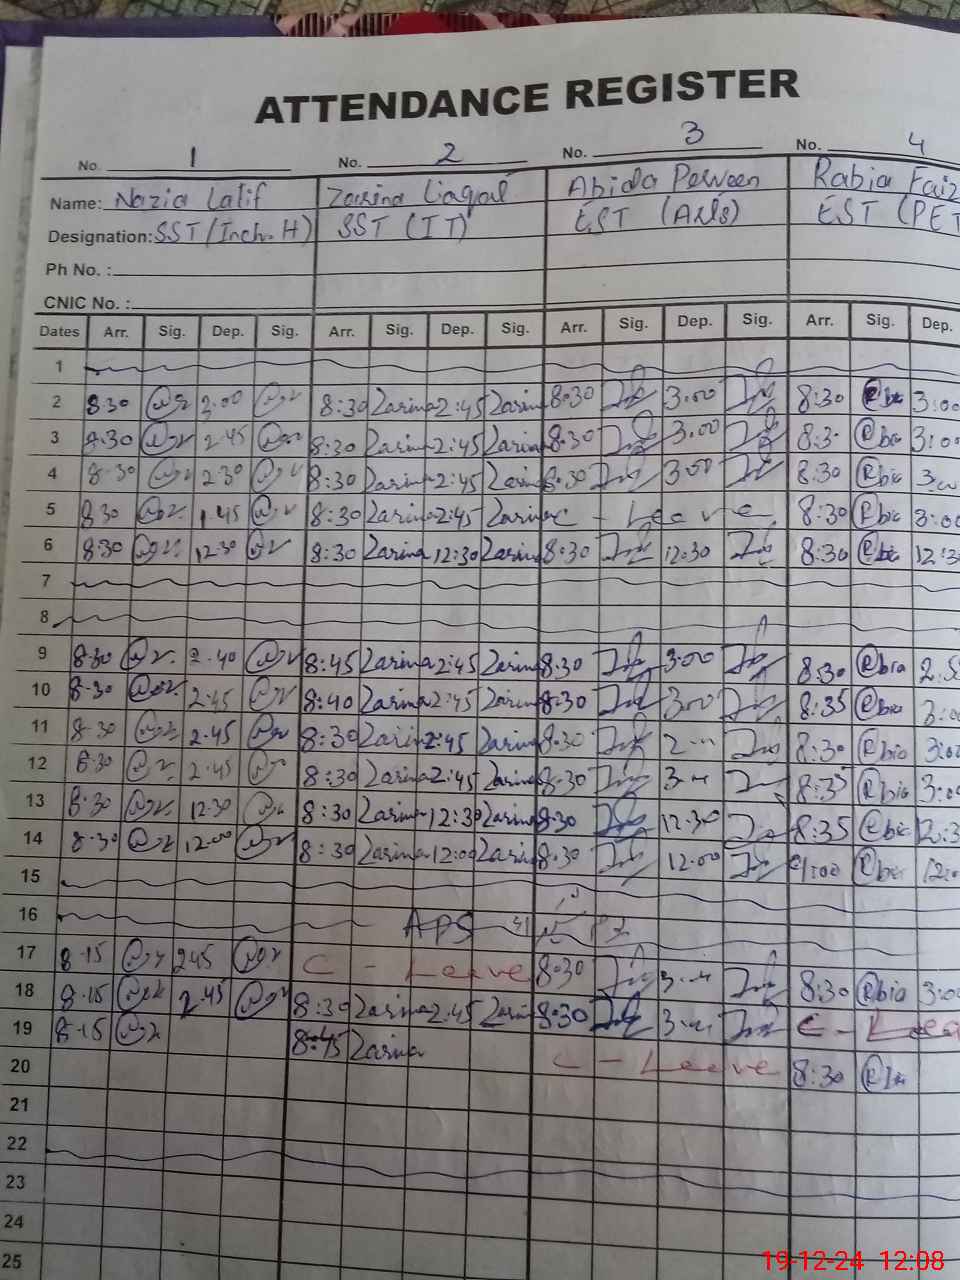 ATTENDANCE REGISTER
No. 1 No. 2 No. 3 No. 4
Name: Nazia Latif Zarina Liaqat Abida Perveen Rabia Faiz
Designation: SST (Inch. H) SST (IT) EST (Arts) EST (PET
Ph No. :
CNIC No. :
Dates Arr. Sig. Dep. Sig. Arr. Sig. Dep. Sig. Arr. Sig. Dep. Sig. Arr. Sig. Dep.
1
2 8:30 3:00 8:30 Zarina 2:45 Zarina 8:30 3:00 8:30 3:00
3 8:30 2:45 8:30 Zarina 2:45 Zarina 8:30 3:00 8:3 3:0
4 8:30 2:30 8:30 Zarina 2:45 Zarina 8:30 3:00 8:30 3:00
5 8:30 1:45 8:30 Zarina 2:45 Zarina C - Leave 8:30 3:00
6 8:30 12:30 8:30 Zarina 12:30 Zarina 8:30 12:30 8:30 12:3
7
8
9 8:30 2:40 8:45 Zarina 2:45 Zarina 8:30 3:00 8:30 2:5
10 8:30 2:45 8:40 Zarina 2:45 Zarina 8:30 3:00 8:35 3:00
11 8:30 2:45 8:30 Zarina 2:45 Zarina 8:30 8:30 3:00
12 8:30 2:45 8:30 Zarina 2:45 Zarina 8:30 8:35 3:00
13 8:30 12:30 8:30 Zarina 12:30 Zarina 8:30 12:30 8:35 12:3
14 8:30 12:00 8:30 Zarina 12:00 Zarina 8:30 12:00 9:00 12:0
15
16 APS
17 8:15 2:45 C - Leave 8:30 8:30 3:00
18 8:15 2:45 8:30 Zarina 2:45 Zarina 8:30 C - Lea
19 8:15 8:45 Zarina C - Leave 8:30
20
21
22
23
24
25
19-12-24 12:08